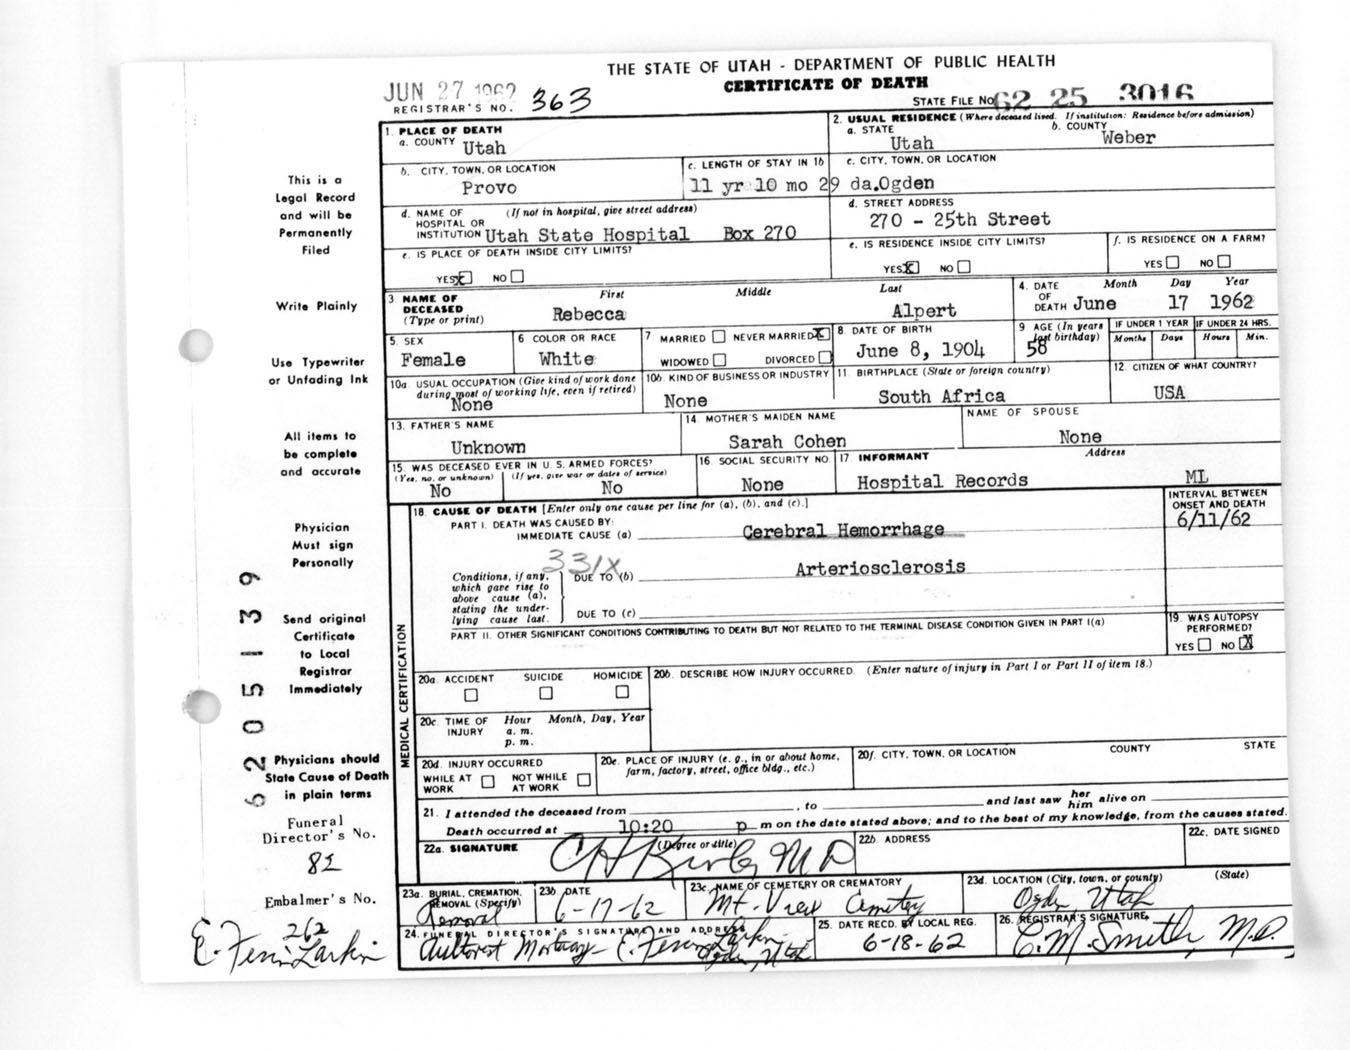 THE STATE OF UTAH - DEPARTMENT OF PUBLIC HEALTH
CERTIFICATE OF DEATH
JUN 27 1962
REGISTRAR'S NO. 363
STATE FILE NO. 62 25 3016
1. PLACE OF DEATH
a. COUNTY Utah
2. USUAL RESIDENCE (Where deceased lived. If institution: Residence before admission)
a. STATE Utah
b. COUNTY Weber
b. CITY, TOWN, OR LOCATION
Provo
c. LENGTH OF STAY IN 1b
11 yr 10 mo 29 da.
c. CITY, TOWN, OR LOCATION
Ogden
d. NAME OF HOSPITAL OR INSTITUTION (If not in hospital, give street address)
Utah State Hospital Box 270
d. STREET ADDRESS
270 - 25th Street
e. IS PLACE OF DEATH INSIDE CITY LIMITS?
YES X NO
e. IS RESIDENCE INSIDE CITY LIMITS?
YES X NO
f. IS RESIDENCE ON A FARM?
YES NO
3 NAME OF DECEASED (Type or print)
First Middle Last
Rebecca Alpert
4. DATE OF DEATH Month Day Year
June 17 1962
5. SEX
Female
6 COLOR OR RACE
White
7 MARRIED NEVER MARRIED X
WIDOWED DIVORCED
8. DATE OF BIRTH
June 8, 1904
9 AGE (In years last birthday)
58
IF UNDER 1 YEAR
Months Days
IF UNDER 24 HRS.
Hours Min.
10a. USUAL OCCUPATION (Give kind of work done during most of working life, even if retired)
None
10b. KIND OF BUSINESS OR INDUSTRY
None
11. BIRTHPLACE (State or foreign country)
South Africa
12. CITIZEN OF WHAT COUNTRY?
USA
13. FATHER'S NAME
Unknown
14 MOTHER'S MAIDEN NAME
Sarah Cohen
NAME OF SPOUSE
None
15. WAS DECEASED EVER IN U. S. ARMED FORCES?
(Yes, no, or unknown) (If yes, give war or dates of service)
No No
16 SOCIAL SECURITY NO.
None
17. INFORMANT Address
Hospital Records ML
18. CAUSE OF DEATH [Enter only one cause per line for (a), (b), and (c).]
INTERVAL BETWEEN ONSET AND DEATH
PART I. DEATH WAS CAUSED BY:
IMMEDIATE CAUSE (a) Cerebral Hemorrhage
6/11/62
331X
Conditions, if any, which gave rise to above cause (a), stating the underlying cause last.
DUE TO (b) Arteriosclerosis
DUE TO (c)
PART II. OTHER SIGNIFICANT CONDITIONS CONTRIBUTING TO DEATH BUT NOT RELATED TO THE TERMINAL DISEASE CONDITION GIVEN IN PART I(a)
19. WAS AUTOPSY PERFORMED?
YES NO X
MEDICAL CERTIFICATION
20a. ACCIDENT SUICIDE HOMICIDE
20b. DESCRIBE HOW INJURY OCCURRED. (Enter nature of injury in Part I or Part II of item 18.)
20c. TIME OF INJURY Hour Month, Day, Year
a. m.
p. m.
20d. INJURY OCCURRED
WHILE AT WORK NOT WHILE AT WORK
20e. PLACE OF INJURY (e. g., in or about home, farm, factory, street, office bldg., etc.)
20f. CITY, TOWN, OR LOCATION COUNTY STATE
21. I attended the deceased from , to and last saw her him alive on
Death occurred at 10:20 p m on the date stated above; and to the best of my knowledge, from the causes stated.
22a. SIGNATURE (Degree or title)
M D
22b. ADDRESS
22c. DATE SIGNED
23a. BURIAL, CREMATION, REMOVAL (Specify)
Removal
23b. DATE
6-17-62
23c. NAME OF CEMETERY OR CREMATORY
Mt. View Cemetery
23d. LOCATION (City, town, or county) (State)
Ogden, Utah
24. FUNERAL DIRECTOR'S SIGNATURE AND ADDRESS
Mortuary - E. Larkin
Ogden, Utah
25. DATE RECD. BY LOCAL REG.
6-18-62
26. REGISTRAR'S SIGNATURE
C. M. Smith, M.D.
This is a
Legal Record
and will be
Permanently
Filed
Write Plainly
Use Typewriter
or Unfading Ink
All items to
be complete
and accurate
Physician
Must sign
Personally
Send original
Certificate
to Local
Registrar
Immediately
Physicians should
State Cause of Death
in plain terms
Funeral
Director's No.
82
Embalmer's No.
262
E. Larkin
62 05139